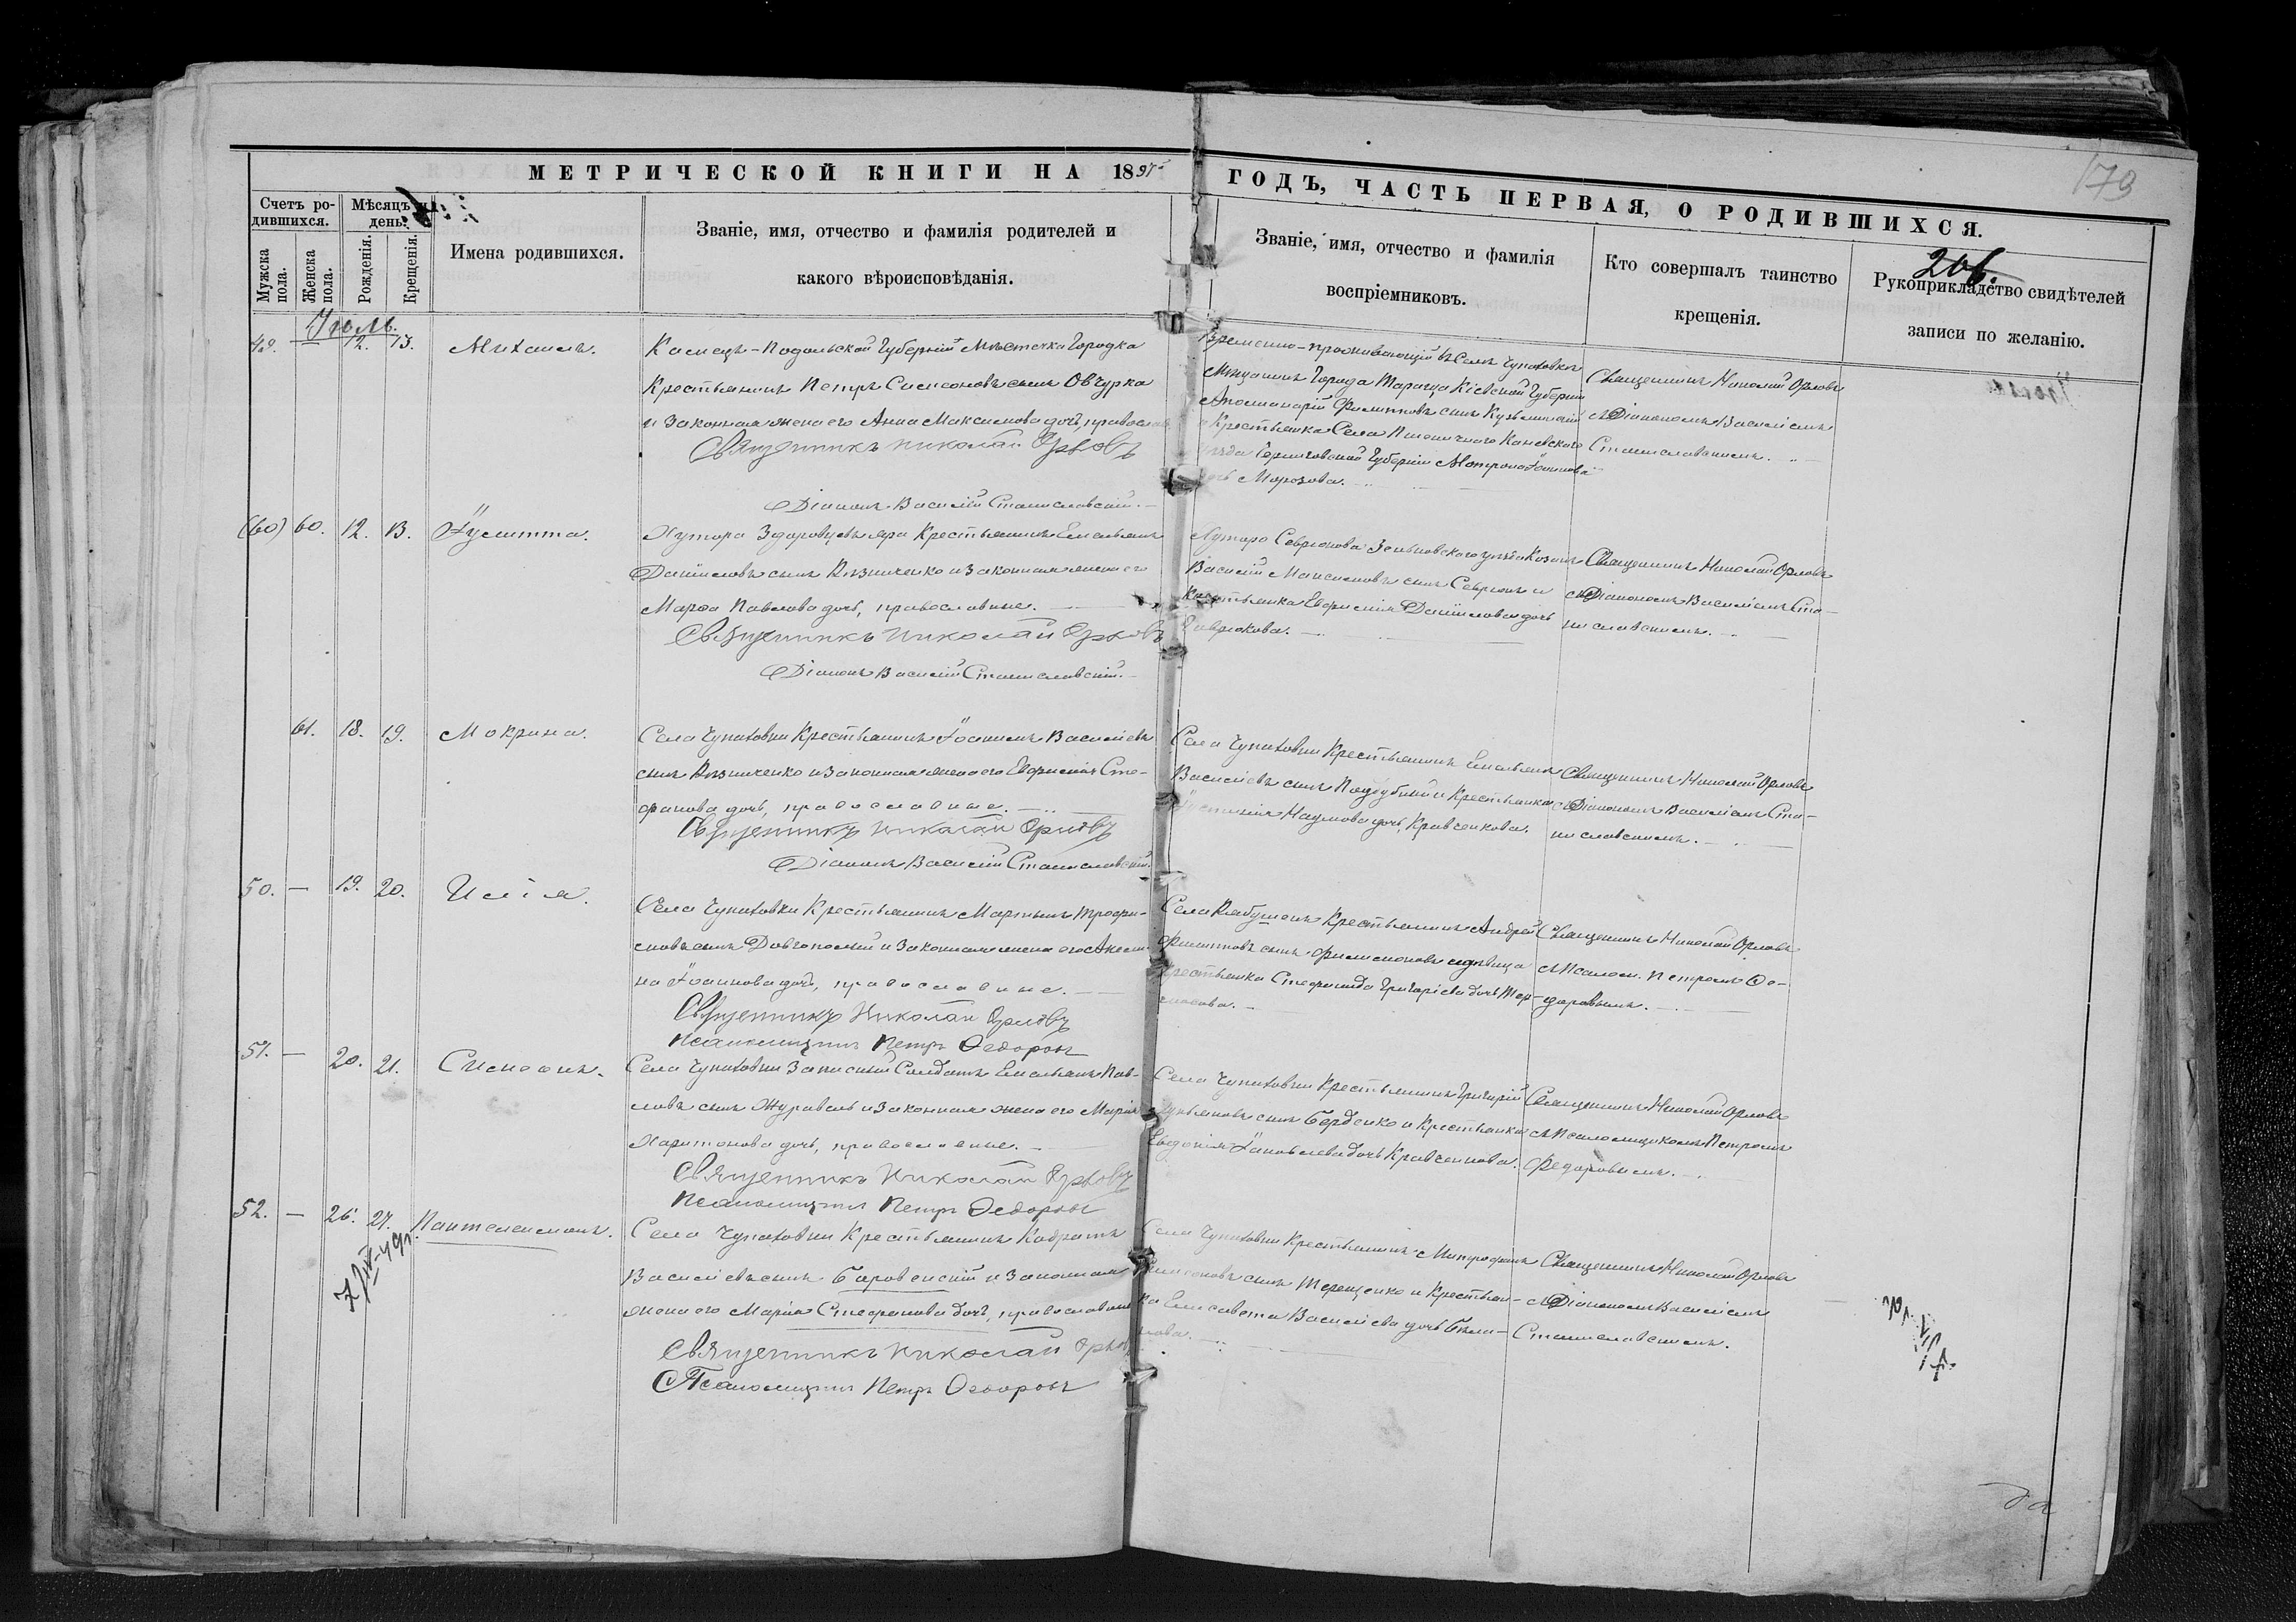 МЕТРИЧЕСКОЙ КНИГИ НА 1897 ГОДЪ, ЧАСТЬ ПЕРВАЯ, О РОДИВШИХСЯ.
179
206.
Счетъ ро-
дившихся.
Мужска пола.
Женска пола.
Мѣсяцъ и
день.
Рожденія.
Крещенія.
Имена родившихся.
Званіе, имя, отчество и фамилія родителей и
какого вѣроисповѣданія.
Званіе, имя, отчество и фамилія
воспріемниковъ.
Кто совершалъ таинство
крещенія.
Рукоприкладство свидѣтелей
записи по желанію.
Іюль.
49. 12. 13. Михаилъ.
Каменцъ-Подольской Губерніи Мѣстечка Городка
Крестьянинъ Петръ Сисоновъ сынъ Овчурка
и законная жена его Анна Максимова дочь, правосла
Священникъ Николай Орловъ
Діаконъ Василій Станиславскій.
Временно-проживающій въ Селѣ Чупаховкѣ
Мѣщанинъ Города Тараща Кіевской Губерніи
Филипповъ сынъ
Крестьянка Села Каневского
Губерніи Матрона
Морозова.
Священникъ Николай Орловъ
съ Діакономъ Василіемъ
Станиславскимъ.
(60) 60. 12. 13. Іулитта.
Хутора Крестьянинъ Емельянъ
Даніиловъ сынъ Рѣзниченко и законная жена его
Марфа Павлова дочь, православные.
Священникъ Николай Орловъ
Діаконъ Василій Станиславскій.
Хутора Севрюкова Зеньковского уѣзда Козакъ
Василій Максимовъ сынъ Севрюкъ и
Крестьянка Евфимія Даніилова дочь
Севрюкова.
Священникъ Николай Орловъ
съ Діакономъ Василіемъ Ста-
ниславскимъ.
61. 18. 19. Мокрина.
Села Чупаховки Крестьянинъ Іоаннъ Васильевъ
сынъ Рѣзниченко и законная жена его Евфимія Сте-
фанова дочь, православные.
Священникъ Николай Орловъ
Діаконъ Василій Станиславскій.
Села Чупаховки Крестьянинъ Емельянъ
Васильевъ сынъ Поддубный и Крестьянка
Наумова дочь Кравченкова.
Священникъ Николай Орловъ
съ Діакономъ Василіемъ Ста-
ниславскимъ.
50. — 19. 20. Илія.
Села Чупаховки Крестьянинъ Мартинъ Трофи-
мовъ сынъ Довгополый и законная жена его Акили-
на Іоаннова дочь, православные.
Священникъ Николай Орловъ
Псаломщикъ Петръ Федоровъ
Села Рябушекъ Крестьянинъ Андрей
Филипповъ сынъ Филимоновъ и дѣвица
Крестьянка Стефанида Григоріева дочь

Священникъ Николай Орловъ
съ Псалом. Петромъ Фе-
доровымъ.
51. — 20. 21. Симеонъ.
Села Чупаховки Запасный Солдатъ Емельянъ Пав-
ловъ сынъ Журавель и законная жена его Марія
Харитонова дочь, православные.
Священникъ Николай Орловъ
Псаломщикъ Петръ Федоровъ
Села Чупаховки Крестьянинъ Григорій
Лукьяновъ сынъ Берденко и Крестьянка
Евдокія Іаковлева дочь Кравченкова.
Священникъ Николай Орловъ
съ Псаломщикомъ Петромъ
Федоровымъ.
52. — 26. 27. Пантелеимонъ.
Села Чупаховки Крестьянинъ Кодратъ
Васильевъ сынъ Боровенскій и законная
жена его Марія Стефанова дочь, православные
Священникъ Николай Орловъ
Псаломщикъ Петръ Федоровъ
Села Чупаховки Крестьянинъ Митрофанъ
сынъ Терещенко и Крестьян-
ка Елисавета Василіева дочь Бѣла-
нова.
Священникъ Николай Орловъ
съ Діакономъ Василіемъ
Станиславскимъ.